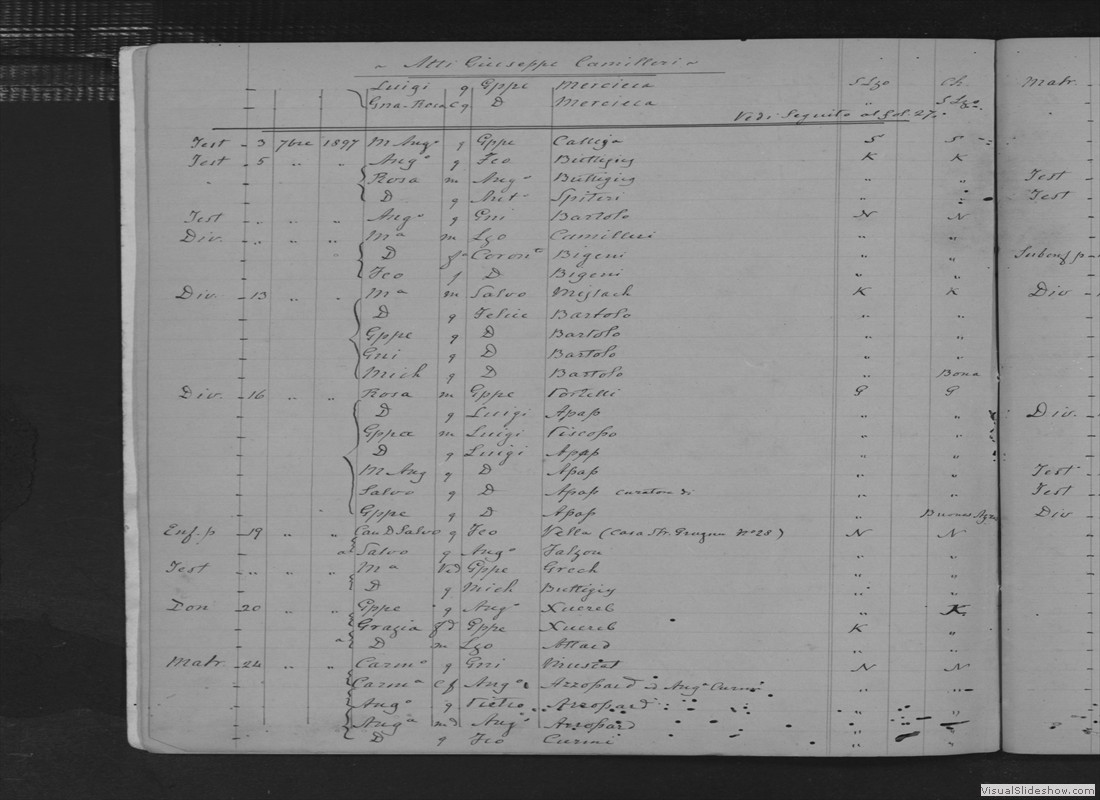 ~ Atti Giuseppe Camilleri ~
Luigi g Gppe Mercieca S Lzo Ch. Matr.
Gra Rosa cg D Mercieca " S Lzo
Vedi Seguito al fol. 27.
Test 3 7bre 1897 M Ango g Gppe Calleja S S
Test 5 " " Ango g Fco Buttigieg K K
Rosa m Ango Buttigieg " " Test
D g Anto Spiteri " " Test
Test " " " Ango g Gni Bartolo N N
Div. " " " Ma m Lzo Camilleri " "
D Bigeni " "
Fco f D Bigeni " "
Div. 13 " " Ma m Salvo Mejlach K K Div
D g Felice Bartolo " "
Gppe g D Bartolo " "
Gni g D Bartolo " "
Mich g D Bartolo " Bona
Div. 16 " " Rosa m Gppe Portelli G G
D g Luigi Apap " " Div.
Gppa m Luigi Piscopo " "
D g Luigi Apap " "
M Ang g D Apap " " Test
Salvo g D Apap curatore di " " Test
Gppe g D Apap " Buenos Ayres Div
Enf. p 19 " " Can D Salvo g Fco Vella (Casa Str. No 28) N N
a Salvo g Ango Falzon " "
Test " " " Ma Vd Gppe Grech " "
D g Mich Buttigieg " "
Don 20 " " Gppe g Ango Xuereb " K
Grazia fd Gppe Xuereb K "
a D m Lzo Attard " "
Matr. 24 " " Carmo g Gni Muscat N N
Carma cf Ango Azzopard d Ango Curmi " "
Ango g Pietro Azzopard " "
Anga md Ango Azzopard " "
D g Fco Curmi " "
VisualSlideshow.com